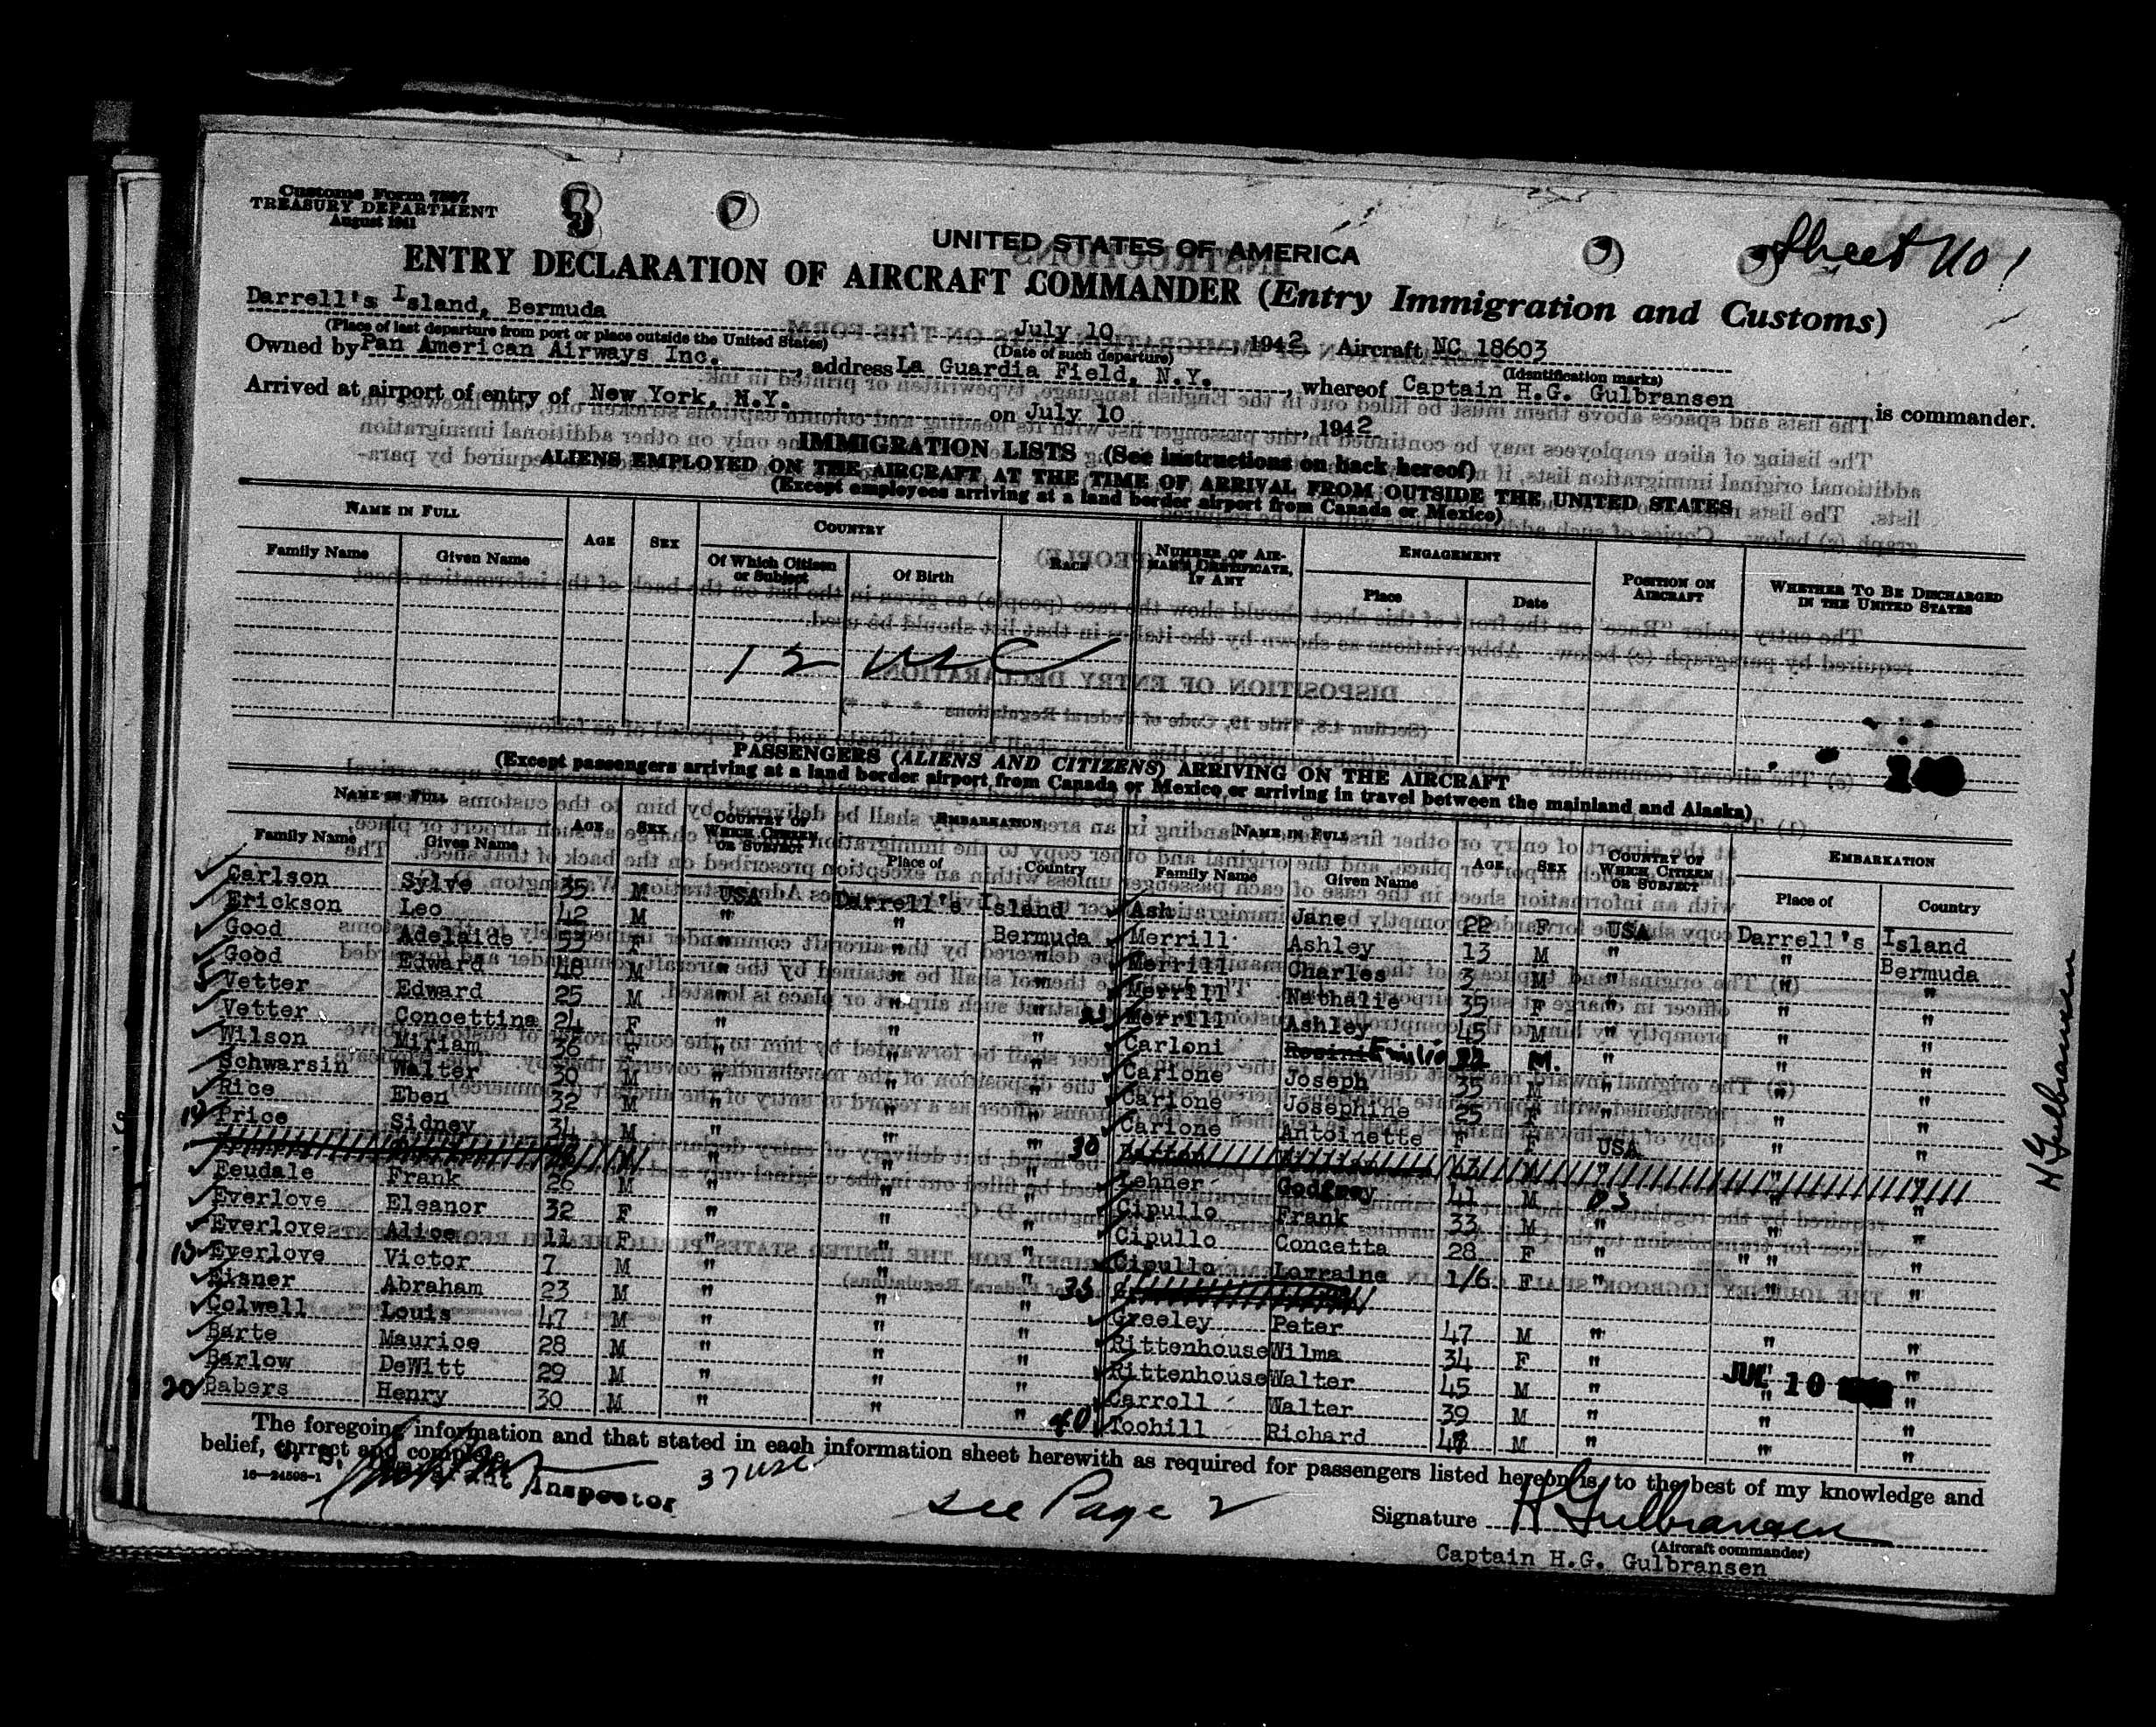 Customs Form 7507
TREASURY DEPARTMENT
August 1941
Sheet No 1
UNITED STATES OF AMERICA
ENTRY DECLARATION OF AIRCRAFT COMMANDER (Entry Immigration and Customs)
Darrell's Island, Bermuda July 10 1942. Aircraft NC 18603
(Place of last departure from port or place outside the United States) (Date of such departure) (Identification marks)
Owned by Pan American Airways Inc. , address La Guardia Field, N.Y. , whereof Captain H.G. Gulbransen is commander.
Arrived at airport of entry of New York, N.Y. on July 10 , 1942
IMMIGRATION LISTS (See instructions on back hereof)
ALIENS EMPLOYED ON THE AIRCRAFT AT THE TIME OF ARRIVAL FROM OUTSIDE THE UNITED STATES
(Except employees arriving at a land border airport from Canada or Mexico)
NAME IN FULL AGE SEX COUNTRY RACE NUMBER OF AIRMAN'S CERTIFICATE, IF ANY ENGAGEMENT POSITION ON AIRCRAFT WHETHER TO BE DISCHARGED IN THE UNITED STATES
Family Name Given Name Of Which Citizen or Subject Of Birth Place Date
12 USC
PASSENGERS (ALIENS AND CITIZENS) ARRIVING ON THE AIRCRAFT
(Except passengers arriving at a land border airport from Canada or Mexico or arriving in travel between the mainland and Alaska)
NAME IN FULL AGE SEX COUNTRY OF WHICH CITIZEN OR SUBJECT EMBARKATION
Family Name Given Name Place of Country
Carlson Sylve 35 M USA Darrell's Island
Erickson Leo 42 M " " Bermuda
Good Adelaide 53 F " " "
Good Edward 48 M " " "
5 Vetter Edward 25 M " " "
Vetter Concettina 24 F " " "
Wilson Miriam 36 F " " "
Schwarsin Walter 30 M " " "
Rice Eben 32 M " " "
10 Price Sidney 34 M " " "
Feudale Frank 26 M " " "
Everlove Eleanor 32 F " " "
Everlove Alice 11 F " " "
15 Everlove Victor 7 M " " "
Eisner Abraham 23 M " " "
Colwell Louis 47 M " " "
Barte Maurice 28 M " " "
Barlow DeWitt 29 M " " "
20 Babers Henry 30 M " " "
NAME IN FULL AGE SEX COUNTRY OF WHICH CITIZEN OR SUBJECT EMBARKATION
Family Name Given Name Place of Country
Ash Jane 22 F USA Darrell's Island
Merrill Ashley 13 M " " Bermuda
Merrill Charles 3 M " " "
Merrill Nathalie 35 F " " "
25 Merrill Ashley 45 M " " "
Carloni Emilio M. " " "
Carione Joseph 35 M " " "
Carione Josephine 25 F " " "
Carione Antoinette F F USA " "
30
Lehner Godfrey 41 M US " "
Cipullo Frank 33 M " " "
Cipullo Concetta 28 F " " "
Cipullo Lorraine 1/6 F " " "
35
Greeley Peter 47 M " " "
Rittenhouse Wilma 34 F " " "
Rittenhouse Walter 45 M " " "
Carroll Walter 39 M " " "
40 Toohill Richard M " " "
JUL 10
H Gulbransen
The foregoing information and that stated in each information sheet herewith as required for passengers listed hereon is, to the best of my knowledge and
belief, correct and complete.
16—24508-1
Inspector
37 USC
See Page 2
Signature H Gulbransen
(Aircraft commander)
Captain H.G. Gulbransen